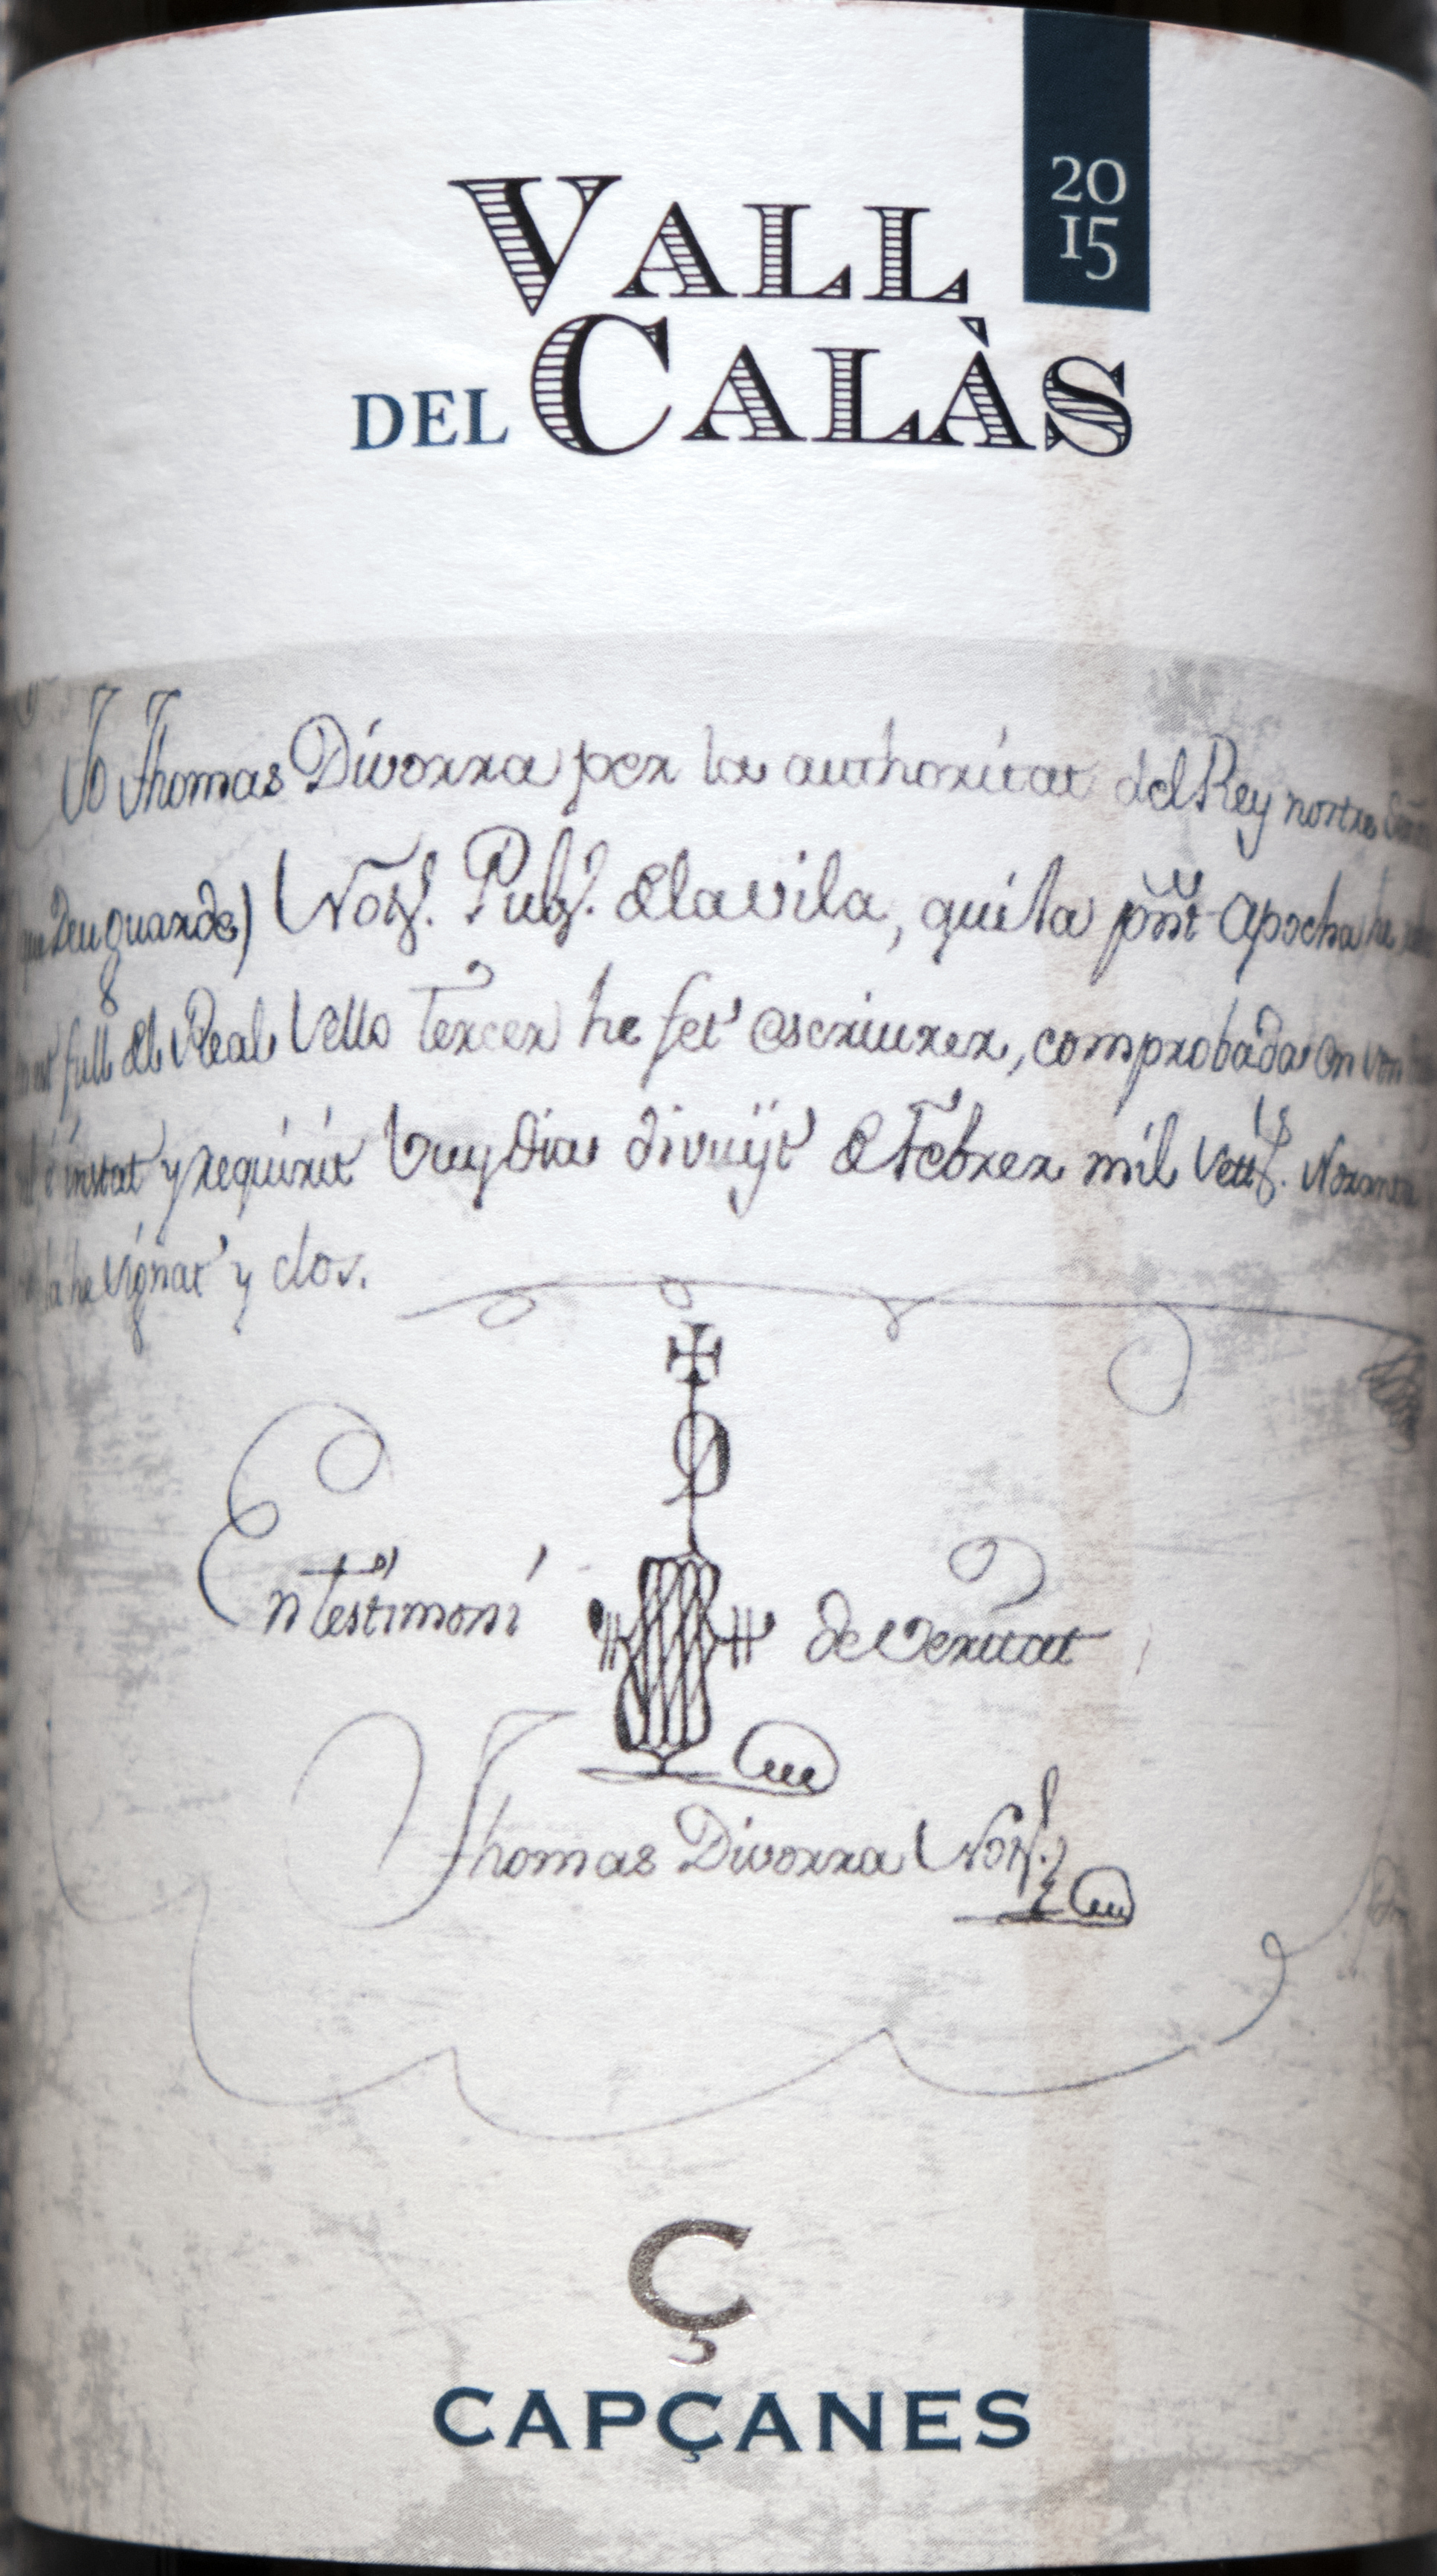 VALL
20
15
DEL CALÀS
Jo Thomas Divorra per la authoritat del Rey nostre
que Deu guarde) Not. Pub. de la vila, qui la pnt Apocha he
full de Real Vello Tercer he fet escriurer, comprobada en
instat y requirit vuy dia divuyt de Febrer mil
la he signat y clos.
En testimoni de veritat
Thomas Divorra Not.
Ç
CAPÇANES